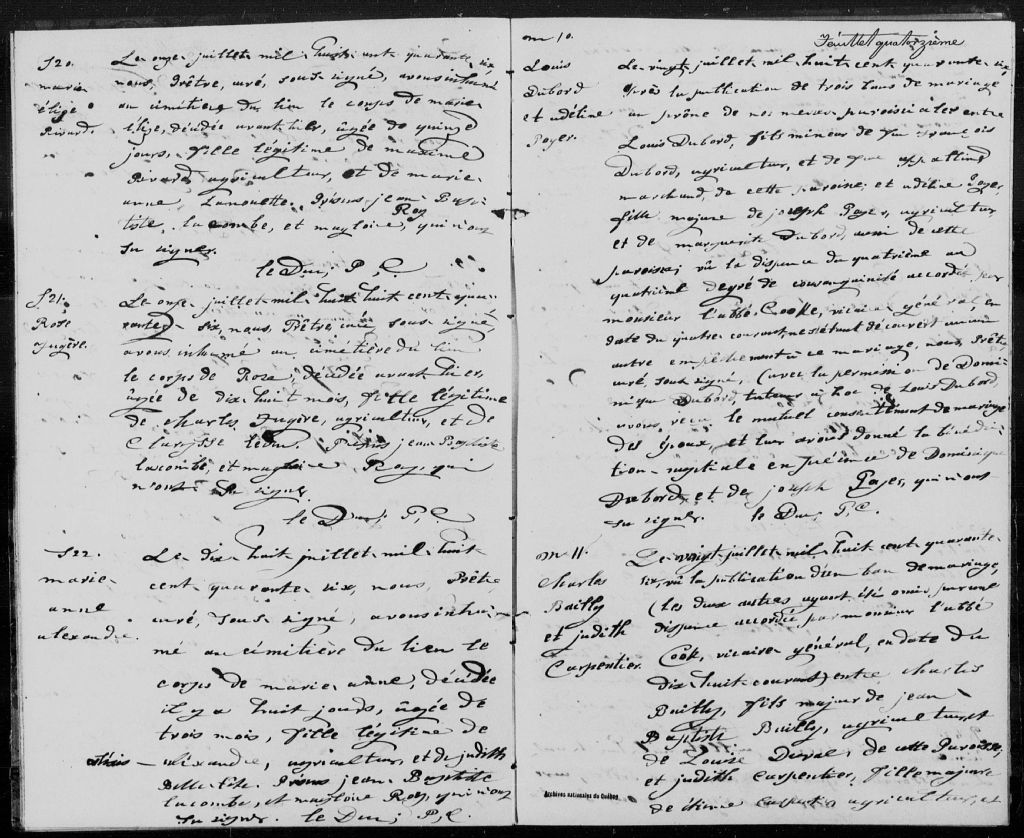 S 20.
marie
élize
Rivard.
Le onze juillet mil huit cent quarante six
nous, Prêtre, curé, sous-signé, avons inhumé
au cimetière du lieu le corps de marie
élize, décédée avant hier, âgée de quinze
jours, fille légitime de maxime
Rivard, agriculteur, et de marie
anne, Lanouette. Présens jean Bap-
tiste, lacombe, et magloire Roy, qui n'ont
su signer.
le Duc, P, C.
S 21.
Rose
Jugère.
Le onze juillet mil huit huit cent qua-
rante- six, nous, Prêtre, curé, sous-signé,
avons inhumé au cimétière du lieu
le corps de Rose, décédée avant hier,
âgée de dix huit mois, fille légitime
de charles Jugère, agriculteur, et de
Claryse leduc, Présens jean Baptiste
lacombe, et magloire Roy, qui
n'ont su signer.
le Duc, P, C.
S 22.
marie-
anne
alexandre.
Le dix huit juillet mil huit
cent quarante six, nous Prêtre
curé, sous-signé, avons inhu-
mé au cimitière du lieu le
corps de marie-anne, décédée
il y a huit jours, âgée de
trois mois, fille légitime de
alexandre, agriculteur, et de judith
Belletête. Présens jean Baptiste
lacombe, et magloire Roy, qui n'ont
su signer. le Duc, P, C.
Feuillet quatorzième
m 10.
Louis
Dubord
et adéline
Payer.
Le vingt juillet mil huit cent quarante six
après la publication de trois bans de mariage
au prône de nos messes paroissiales entre
Louis Dubord, fils mineur de feu François
Dubord, agriculteur, et de feue appoline
marchand, de cette paroisse; et adéline Payer,
fille majeure de joseph Payer, agriculteur
et de marguerite Dubord, aussi de cette
paroisse; vû la dispense du quatrième au
quatrième degré de consanguinité accordée par
monsieur l'abbé Cooke, vicaire général, en
date du quatre courant, ne s'étant découvert aucun
autre empêchement à ce mariage, nous, Prêtre
curé, sous-signé, (avec la permission de Domi-
nique Dubord, tuteur ad hoc de Louis Dubord,
avons reçu le mutuel consentement de mariage
des époux, et leur avons donné la bénédic-
tion- nuptiale en présence de Dominique
Dubord, et de joseph Payer, qui n'ont
su signer. le Duc, P, C.
m 11.
Charles
Bailly
et judith
Carpentier.
Le vingt juillet mil huit cent quarante
six, vû la publication d'un ban de mariage,
(les deux autres ayant été omis, par une
dispense accordée par monsieur l'abbé
Cook, vicaire général, en date du
dix-huit courant) entre charles
Bailly, fils majeur de jean
Baptiste Bailly, agriculteur, et
de Louise Duval, de cette Paroisse,
et judith Carpentier, fille majeure
de étienne Carpentier agriculteur, et
Archives nationales du Québec